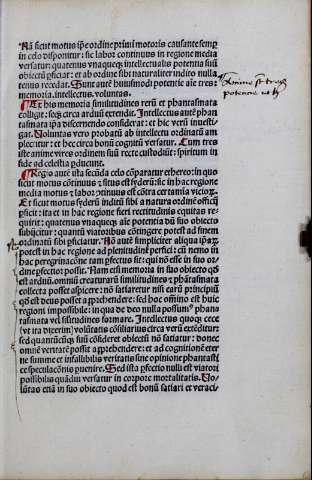 Nā sicut motus ip̄e ordine primi motoris causante semp
in celo disponitur: sic labor continuus in regione media
versatur: quatenus vnaqueq; intellectualis potentia suū
obiectū ꝑficiar: et ab ordine sibi naturaliter indito nulla
tenus recedat. Sunt autē huiusmodi potentie aīe tres:
memoria. intellectus. voluntas.
Ex his memoria similitudines rerū et phantasmata
colligit: seq; circa arduū extendit. Intellectus autē phan
tasmata ip̄a discernendo considerat: et hic verū inuesti
gat. Voluntas vero probatū ab intellectu ordinatū am
plectitur: et hec circa bonū cognitū versatur. Cum tres
iste anime vires ordinem suū recte custodiūt: spiritum in
fide ad celestia ꝑducunt.
Regio autē ista secūda celo cōparatur ethereo: in quo
sicut motus cōtinuus ⁊ situs est syderū: sic in hac regione
media motus ⁊ labor ꝯtinuus est cōtra certamīa viciorū.
Et sicut motus syderū inditū sibi a natura ordinē officiū
ꝑficit: ita et in hac regione fieri rectitudinis equitas re-
quirit: quatenus vnaqueq; aīe potentia dū suo obiecto
subijcitur: quantū viatoribus cōtingere potest ad finem
ordinatū sibi ꝑficiatur. Nō autē simpliciter aliqua ip̄arū
potest in hac regione ad plenitudinē perfici: cū nemo in
hac peregrinatiōne tam ꝑfectus sit: qui nō esse in suo or-
dine ꝑfectior possit. Nam etsi memoria in suo obiecto qd̄
est arduū. omniū creaturarū similitudines ⁊ phātasmata
collecta posset aspicere: nō satiaretur nisi earū principiū
qd̄ est deus posset apprehendere: sed hoc omnino est huic
regioni impossibile: in qua de deo nulla possumꝰ phan
tasmata vel silitudines formare. Intellectus quoq; cece
(vt ita dixerim) volūtatis cōsiliarius circa verū extēditur:
sed quantūcūq; suū cōsideret obiectū nō satiatur: donec
omnē veritatē possit apprehendere: et ad cognitionē eter
ne summe et infallibilis veritatis sine opinione phantasti
ce speculacōnis ꝑuenire. Sed ista ꝑfectio nulli est viatori
possibilis quādiu versatur in corpore mortalitatis. Vo-
lūtas etiā in suo obiecto quod est bonū satiari et veraci-
Anime st̄ tres
potencie